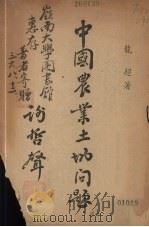 龍超著
中國農業土地問題
嶺南大學圖書館
惠存
著者寄贈
謝哲聲
三六、八、十二
01019